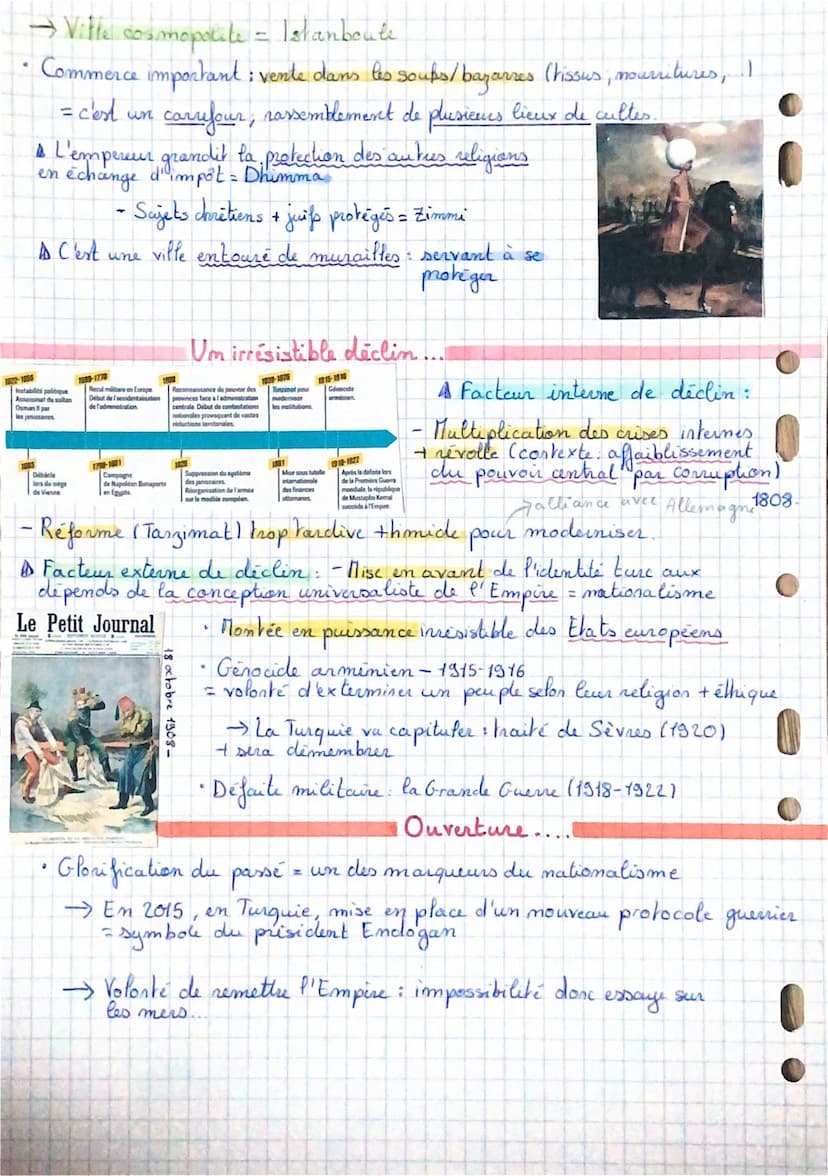 → Ville cosmopolite = Istanboule
• Commerce important : vente dans les souks/bazarres (tissus, nourritures, ...)
= c'est un carrefour, rassemblement de plusieurs lieux de cultes.
L'empereur grandit la protection des autres religions
en échange d'impôt = Dhimma
- Sujets chrétiens + juifs protégés = Zimmi
C'est une ville entouré de murailles : servant à se
protéger
Un irrésistible déclin...
1622-1656
Instabilité politique
Assassinat du sultan
Osman II par
les janissaires.
1699-1770
Recul militaire en Europe.
Début de l'occidentalisation
de l'administration.
1808
Reconnaissance du pouvoir des
provinces face à l'administration
centrale. Début de contestations
nationales provoquant de vastes
réductions territoriales.
1839-1876
Tanzimat pour
moderniser
les institutions.
1915-1916
Génocide
arménien.
1683
Débâcle
lors du siège
de Vienne
1798-1801
Campagne
de Napoléon Bonaparte
en Égypte.
1826
Suppression du système
des janissaires.
Réorganisation de l'armée
sur le modèle européen.
1881
Mise sous tutelle
internationale
des finances
ottomanes.
1918-1922
Après la défaite lors
de la Première Guerre
mondiale, la république
de Mustapha Kemal
succède à l'Empire.
Facteur interne de déclin :
- Multiplication des crises internes
+ révolte (contexte : affaiblissement
du pouvoir central par corruption)
1808.
→ alliance avec Allemagne
- Réforme (Tanzimat) trop tardive + timide pour moderniser.
Facteur externe de déclin : - Mise en avant de l'identité turc aux
dépends de la conception universaliste de l'Empire = nationalisme
Le Petit Journal
18 octobre 1908 -
• Montée en puissance irrésistible des États européens
• Génocide arménien - 1915-1916
= volonté d'exterminer un peuple selon leur religion + éthique
→ La Turquie va capituler : traité de Sèvres (1920)
+ sera démembrer
• Défaite militaire : la Grande Guerre (1918-1922)
Ouverture....
• Glorification du passé = un des marqueurs du nationalisme
→ En 2015, en Turquie, mise en place d'un nouveau protocole guerrier
= symbole du président Endogan
→ Volonté de remettre l'Empire : impossibilité donc essaye sur
les mers...